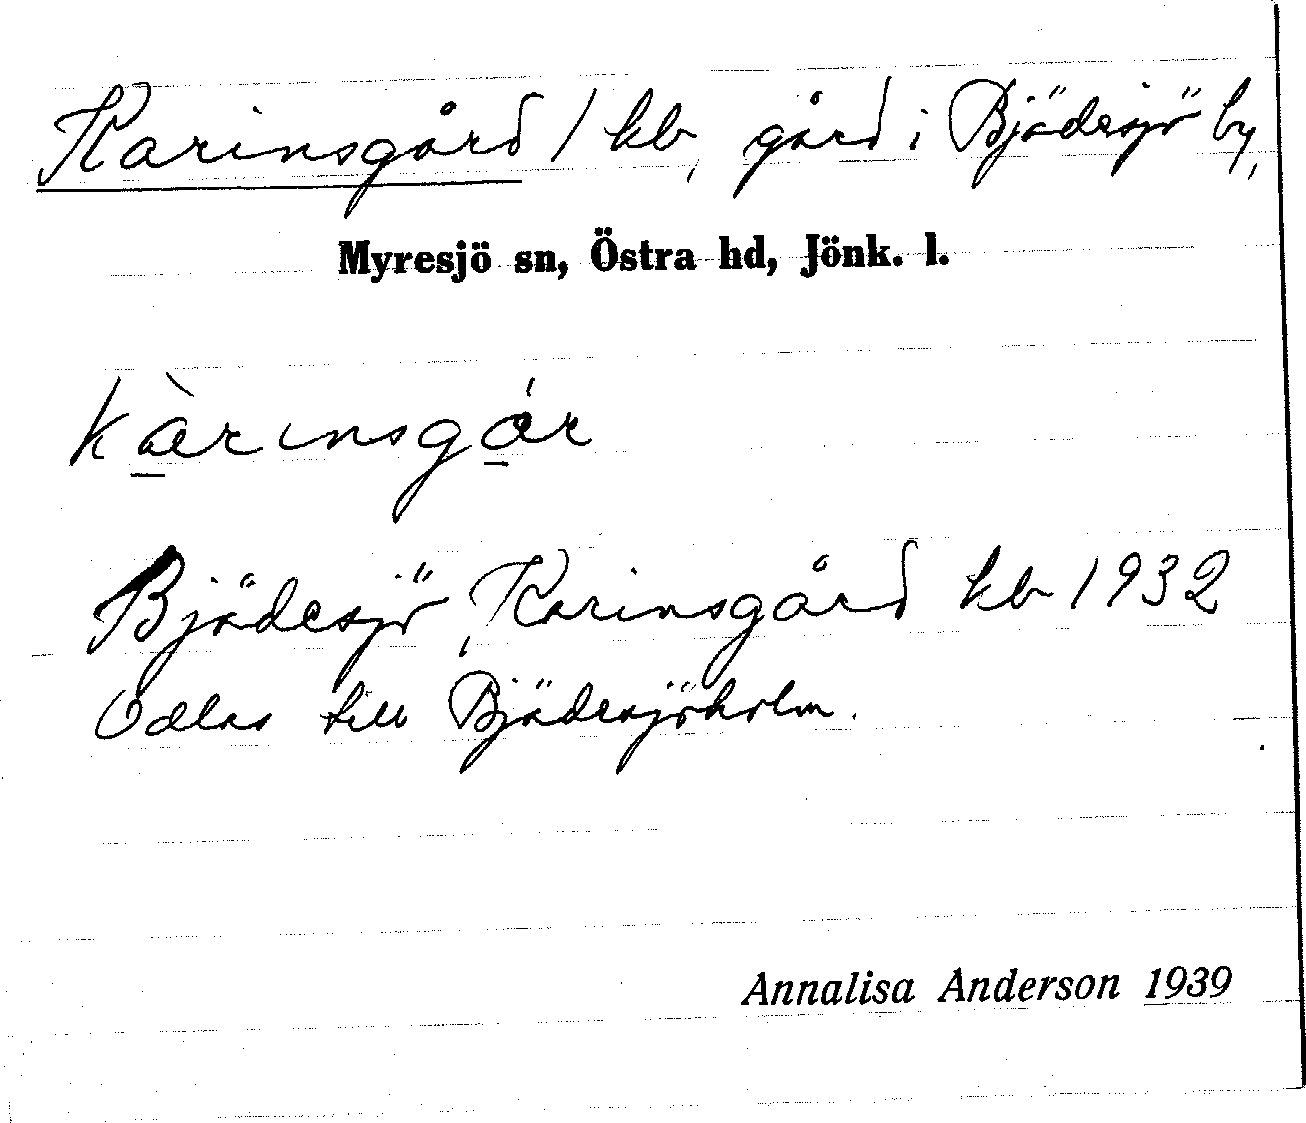 Karinsgård / kb, gård i Bjädesjö by,
Myresjö sn, Östra hd, Jönk. l.
kàrinsgár
Bjädesjö, Karinsgård kb 1932
Odlas till Bjädesjöholm.
Annalisa Anderson 1939